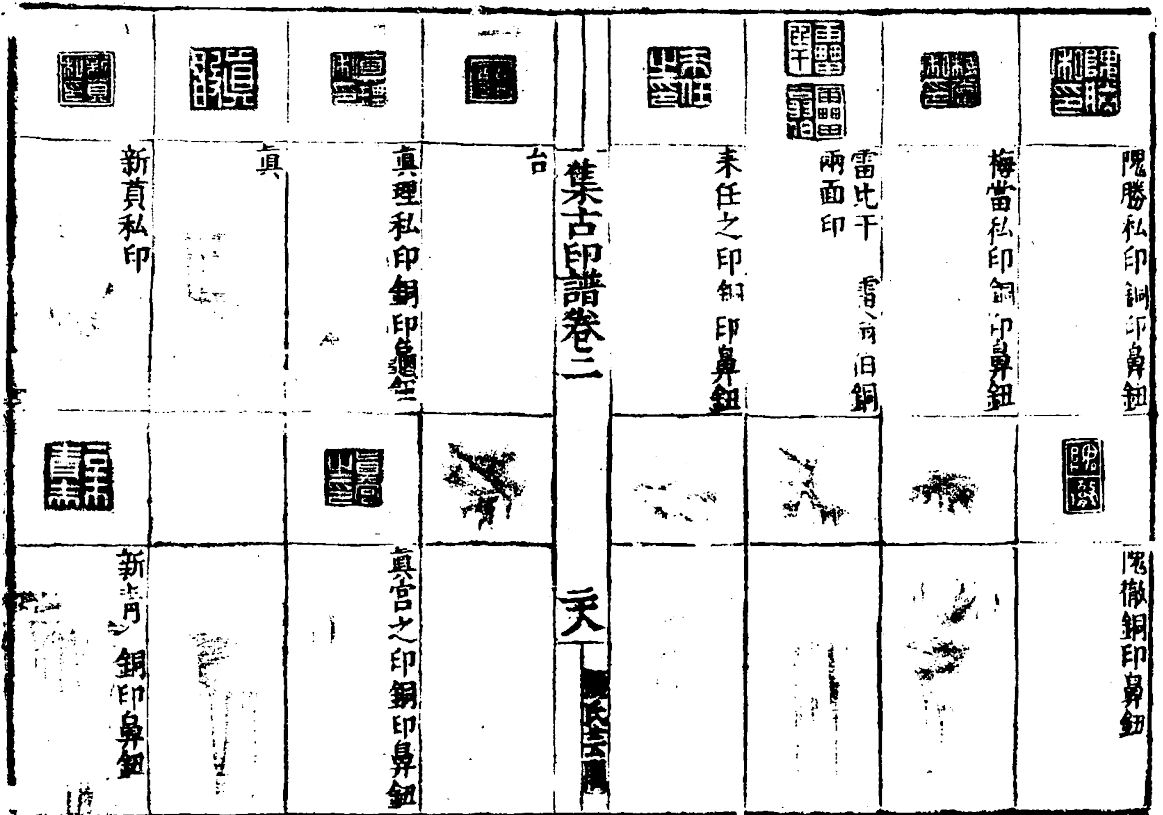 隗勝私印銅印鼻鈕
隗徹銅印鼻鈕
梅當私印銅印鼻鈕
雷比干 雷 銅
兩面印
耒任之印銅印鼻鈕
集古印譜卷二
台
眞理私印銅印龜鈕
眞宫之印銅印鼻鈕
眞
新萯私印
新 銅印鼻鈕